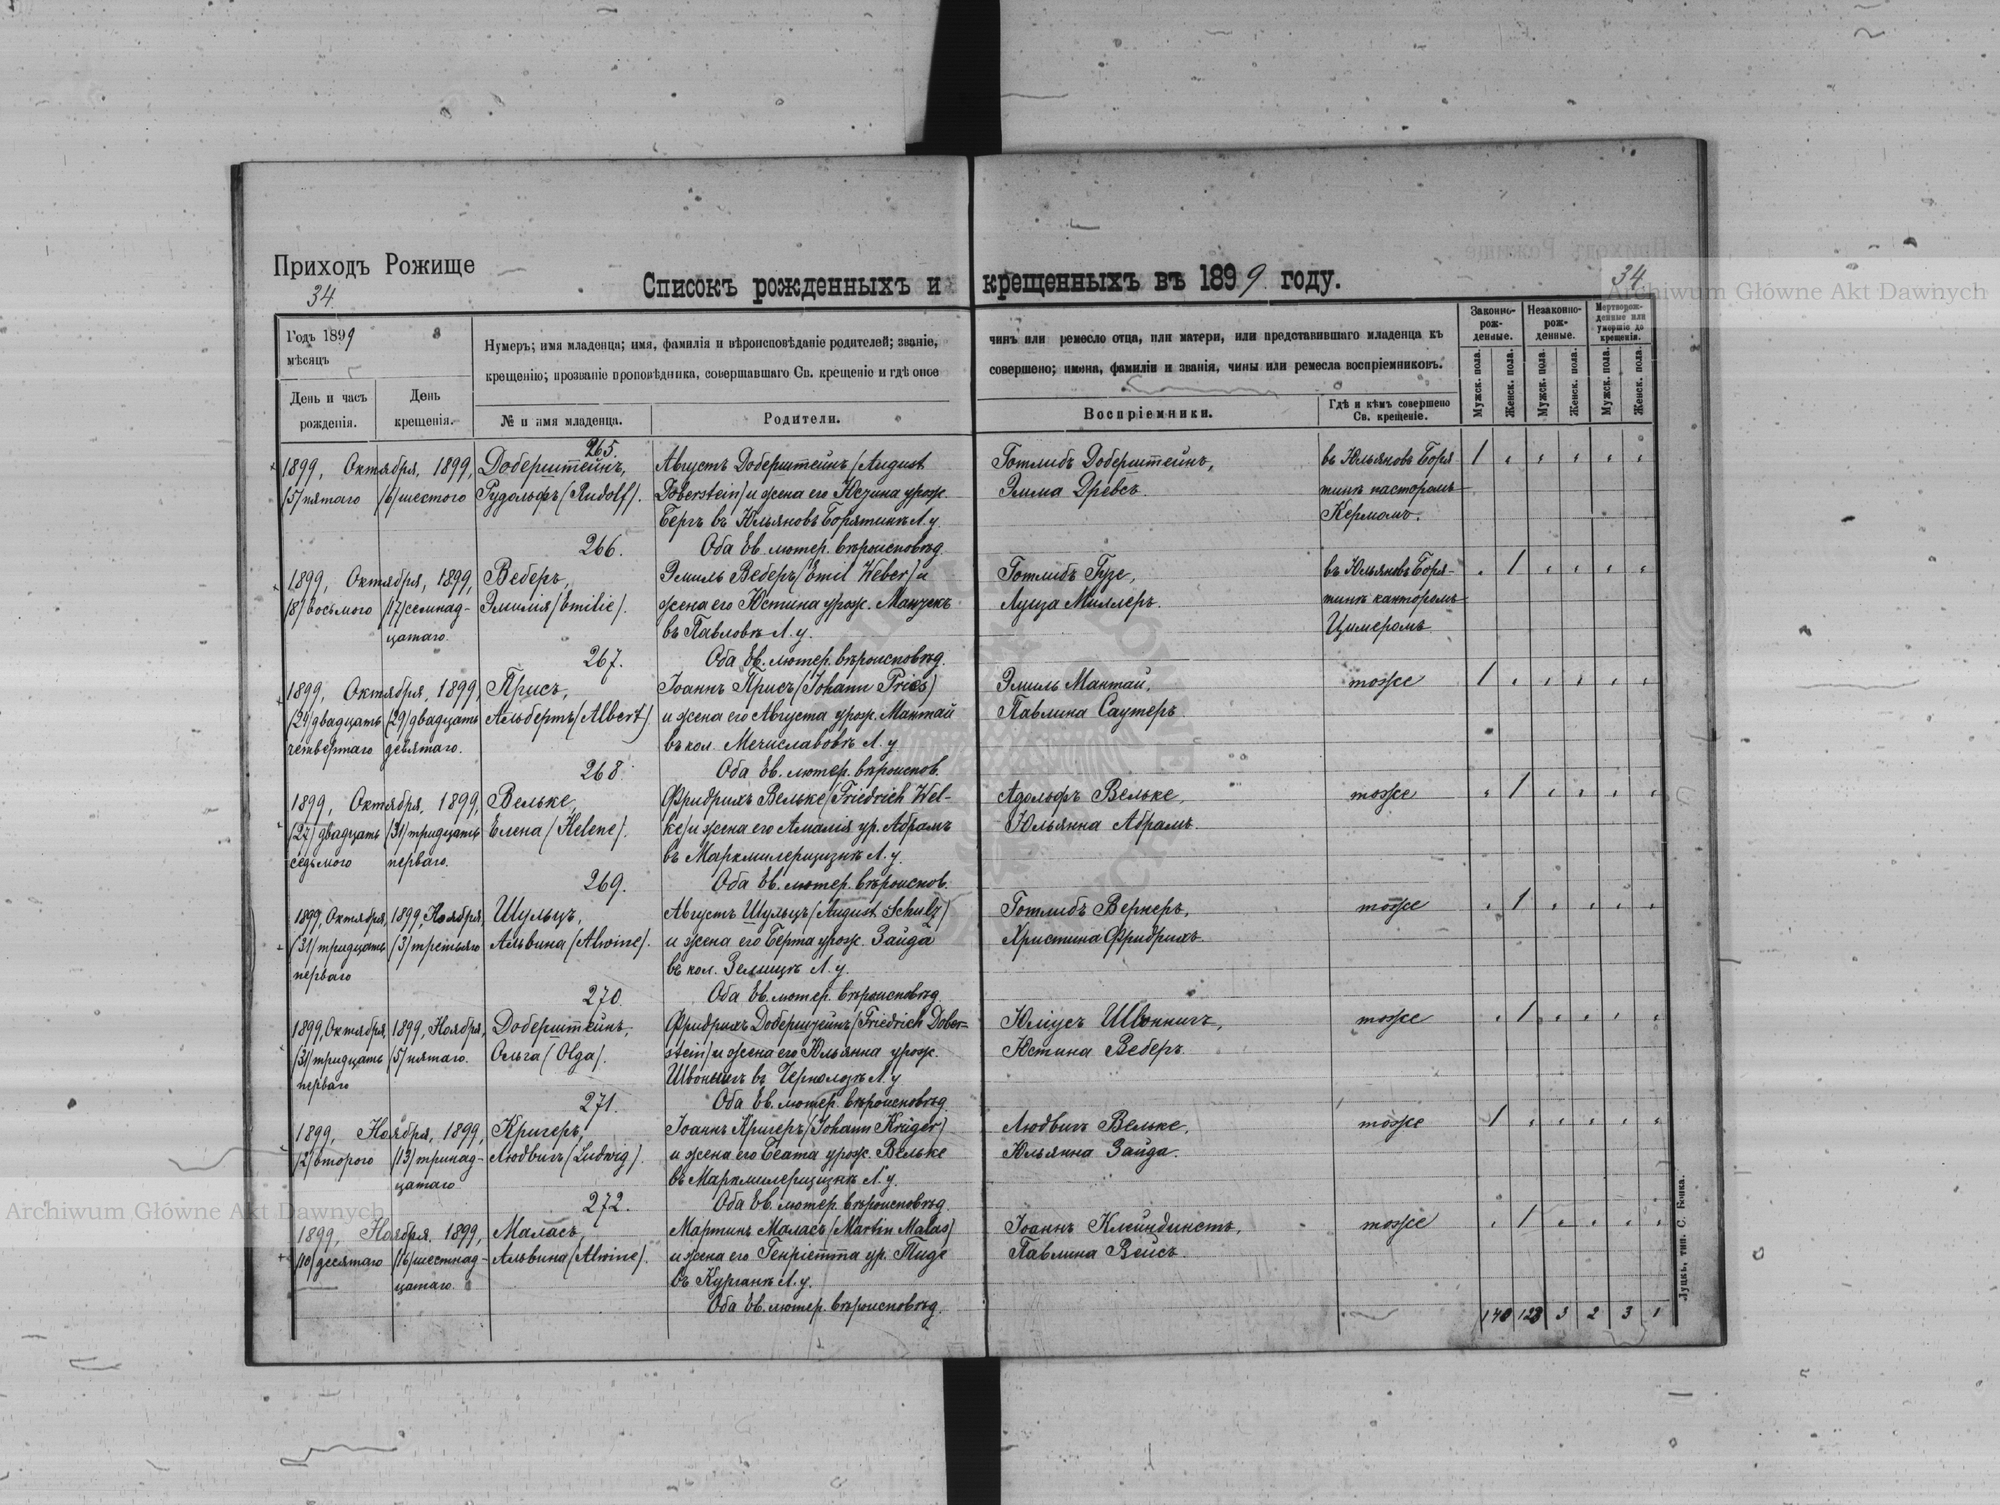 Приходъ Рожище
34.
Списокъ рожденныхъ и крещенныхъ въ 1899 году.
34
Archiwum Główne Akt Dawnych
Годъ 1899
мѣсяцъ
День и часъ рожденія.
День крещенія.
Нумеръ; имя младенца; имя, фамилія и вѣроисповѣданіе родителей; званіе, чинъ или ремесло отца, или матери, или представившаго младенца къ
крещенію; прозваніе проповѣдника, совершавшаго Св. крещеніе и гдѣ оное совершено; имена, фамиліи и званія, чины или ремесла воспріемниковъ.
№ и имя младенца.
Родители.
Воспріемники.
Гдѣ и кѣмъ совершено Св. крещеніе.
Законно-рож-денные.
Незаконно-рож-денные.
Мертворож-денные или умершіе до крещенія.
Мужск. пола.
Женск. пола.
Мужск. пола.
Женск. пола.
Мужск. пола.
Женск. пола.
265.
1899, Октября, 1899, Доберштейнъ, Августъ Доберштейнъ (August Готлибъ Доберштейнъ, въ Юльяновѣ Боря- 1
(5) пятаго (6) шестого Рудольфъ (Rudolf). Doberstein) и жена его Юстина урож. Эмма Древсъ. тинѣ пасторомъ
Бергъ въ Юльяновѣ Борятинѣ Л. у. Кермомъ.
266. Оба Ев. лютер. вѣроисповѣд.
1899, Октября, 1899, Веберъ, Эмиль Веберъ (Emil Weber) и Готлибъ Гузе, въ Юльяновѣ Боря- 1
(8) восьмого (17) семнад- Эмилія (Emilie). жена его Юстина урож. Манзекъ Луиза Миллеръ. тинѣ канторомъ
цатаго. въ Павловкѣ Л. у. Цимеромъ
267. Оба Ев. лютер. вѣроисповѣд.
1899, Октября, 1899, Присъ, Іоаннъ Присъ (Johann Pries) Эмиль Мантай, тоже 1
(24) двадцать (29) двадцать Альбертъ (Albert). и жена его Августа урож. Мантай Павлина Саутеръ.
четвертаго девятаго. въ кол. Мечиславовкѣ Л. у.
268. Оба Ев. лютер. вѣроисповѣд.
1899, Октября, 1899, Вельке, Фридрихъ Вельке (Friedrich Wel- Адольфъ Вельке, тоже 1
(27) двадцать (31) тридцать Елена (Helene). ke) и жена его Амалія ур. Абрамъ Юльянна Абрамъ.
седьмого перваго. въ Марьмилерщизнѣ Л. у.
269. Оба Ев. лютер. вѣроисповѣд.
1899, Октября, 1899, Ноября, Шульцъ, Августъ Шульцъ (August Schulz) Готлибъ Вернеръ, тоже 1
(31) тридцать (3) третьяго Альвина (Alwine). и жена его Берта урож. Зайда Христина Фридрихъ.
перваго въ кол. Земищѣ Л. у.
270. Оба Ев. лютер. вѣроисповѣд.
1899, Октября, 1899, Ноября, Доберштейнъ, Фридрихъ Доберштейнъ (Friedrich Dober- Юліусъ Швоннигъ, тоже 1
(31) тридцать (5) пятаго. Ольга (Olga). stein) и жена его Юльянна урож. Юстина Веберъ.
перваго Л. у.
271. Оба Ев. лютер. вѣроисповѣд.
1899, Ноября, 1899, Кригеръ, Іоаннъ Кригеръ (Johann Krüger) Людвигъ Вельке, тоже 1
(2) второго (13) тринад- Людвигъ (Ludwig). и жена его Беата урож. Вельке Юльянна Зайда.
цатаго въ Марьмилерщизнѣ Л. у.
272. Оба Ев. лютер. вѣроисповѣд.
1899, Ноября, 1899, Маласъ, Мартинъ Маласъ (Martin Malas) Іоаннъ Клейндинстъ, тоже 1
(10) десятаго (16) шестнад- Альвина (Alwine). и жена его Генріетта ур. Тиде Павлина Вейсъ.
цатаго. въ Курганѣ Л. у.
Оба Ев. лютер. вѣроисповѣд.
140 128 3 2 3 1
Луцкъ, тип. С. Бенка.
Archiwum Główne Akt Dawnych